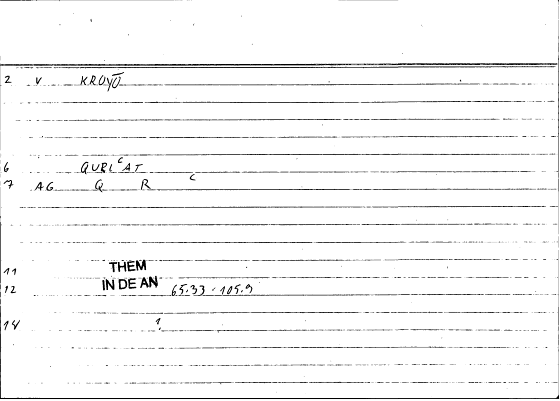 2 V KRUYŪ
6 QUBLCAT
7 AG Q R C
11 THEM
12 IN DE AN 65.33 - 105.9
14 1.